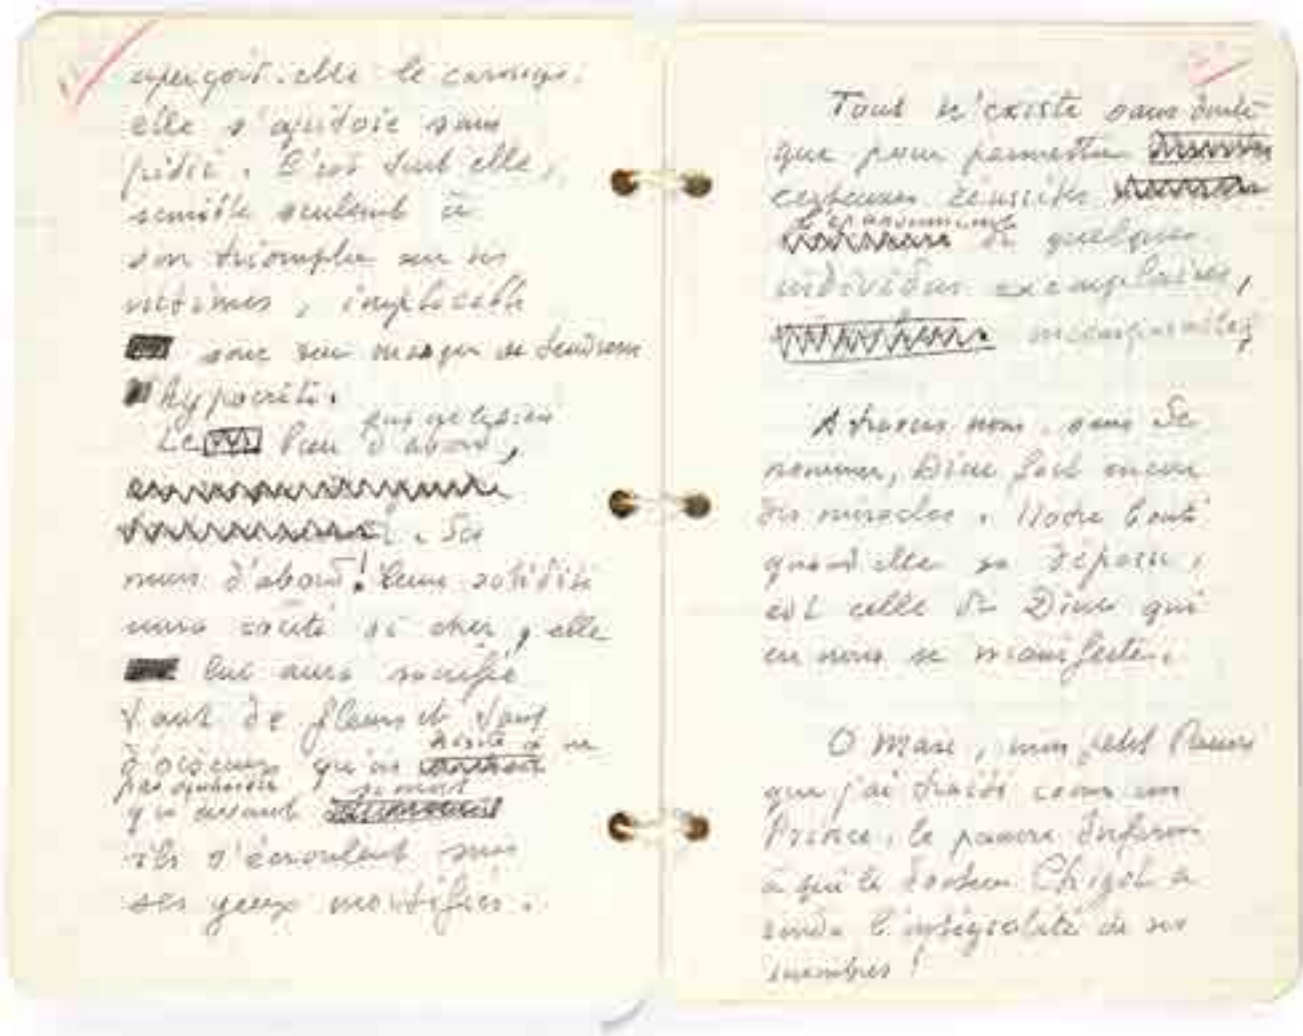 aperçoit. elle le
elle s'apitoie sans
pitié. C'est tout elle,
semble seulement à
son triomphe sur ses
victimes, implacable
sous son masque de tendresse
hypocrite.
Le d'abord,
Ses
murs d'abord! Leur solidité
aura coûté si cher, elle
leur aura sacrifié
tant de fleurs et tant
d'oiseaux qu'on hésite à ne
pas
que devant
ils s'écroulent sous
ses yeux mortifiés.
Tout n'existe sans doute
que pour permettre
certaines réussites
l'épanouissement
de quelques
individus exemplaires,
incomparables,
A travers nous, sans se
nommer, Dieu fait encore
des miracles. Notre bonté
quand elle se dépasse,
est celle de Dieu qui
en nous se manifeste.
O Marc, mon petit
que j'ai traité comme un
Prince, le pauvre Infirme
à qui le Docteur Chigot a
rendu l'intégralité de ses
membres!